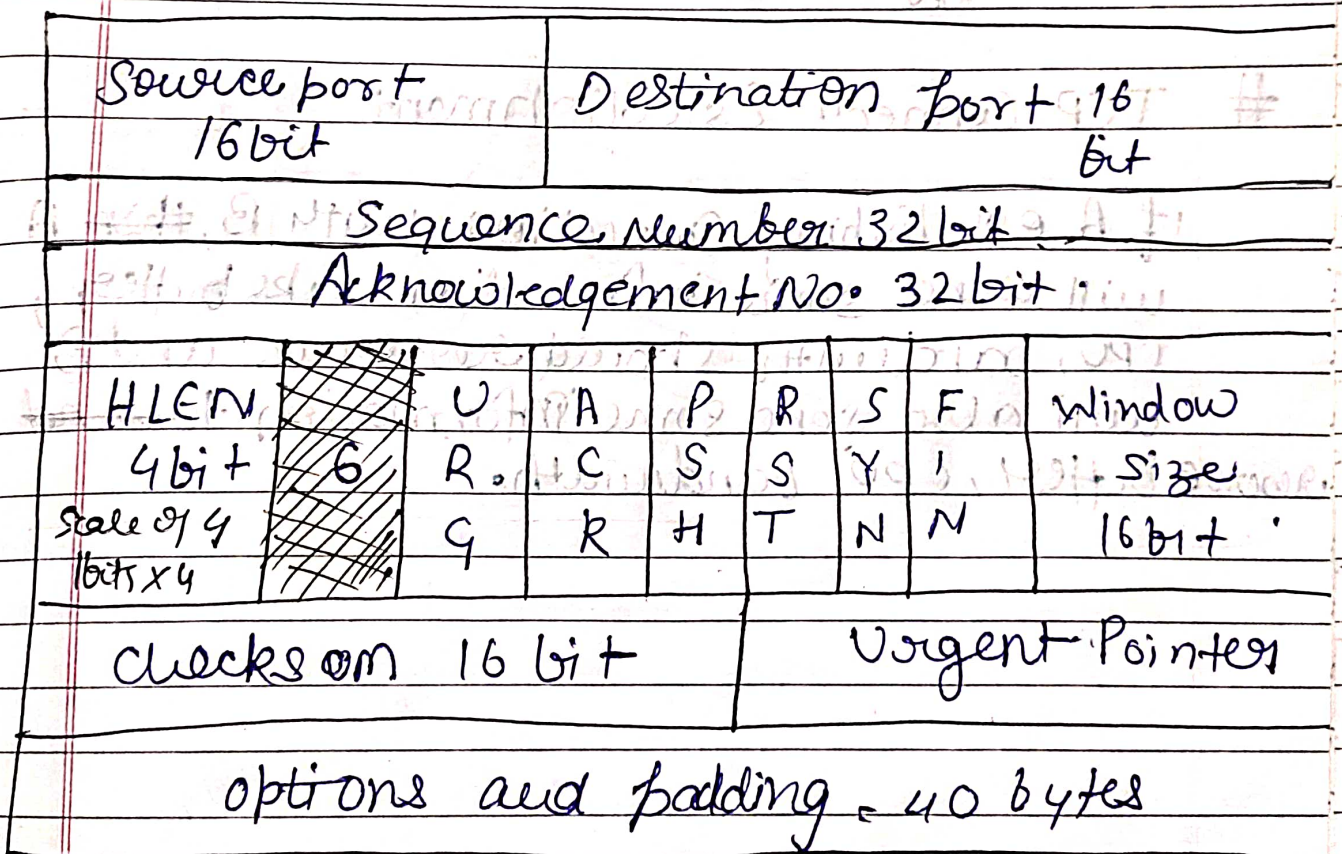 Source port
16 bit
Destination port 16
bit
Sequence Number 32 bit
Acknowledgement No. 32 bit.
HLEN
4 bit
Scale of 4
1 bits x 4
6
U
R
G
A
C
K
P
S
H
R
S
T
S
Y
N
F
I
N
Window
Size
16 bit
checksom 16 bit
Urgent Pointer
options and padding = 40 bytes